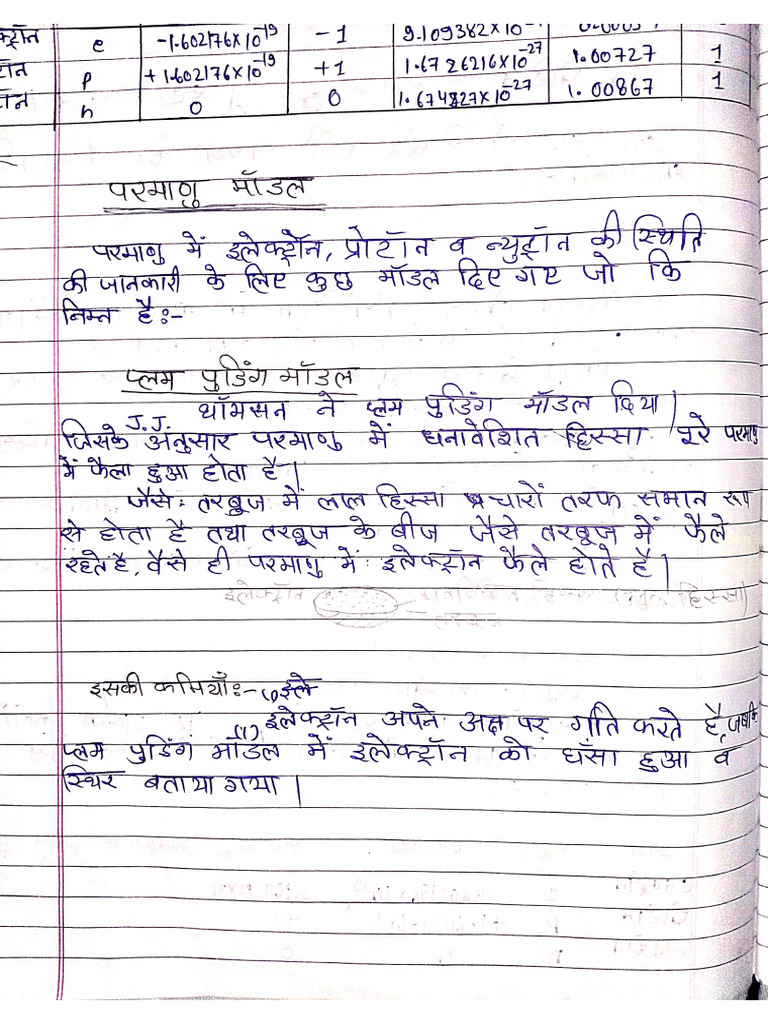 e -1.602176×10⁻¹⁹ -1 9.109382×10
p +1.602176×10⁻¹⁹ +1 1.6726216×10⁻²⁷ 1.00727 1
n 0 0 1.674827×10⁻²⁷ 1.00867 1
परमाणु मॉडल
परमाणु में इलेक्ट्रॉन, प्रोटॉन व न्युट्रॉन की स्थिति
की जानकारी के लिए कुछ मॉडल दिए गए जो कि
निम्न है:-
प्लम पुडिंग मॉडल
J.J. थॉमसन ने प्लम पुडिंग मॉडल दिया|
जिसके अनुसार परमाणु में धनावेशित हिस्सा पूरे परमाणु
में फैला हुआ होता है|
जैसे: तरबूज में लाल हिस्सा चारों तरफ समान रूप
से होता है तथा तरबूज के बीज जैसे तरबूज में फैले
रहते है, वैसे ही परमाणु में इलेक्ट्रॉन फैले होते है|
इलेक्ट्रॉन हिस्सा)
तरबूज
इसकी कमियाँ:- (i) इले
(1) इलेक्ट्रॉन अपने अक्ष पर गति करते है, जबकि
प्लम पुडिंग मॉडल में इलेक्ट्रॉन को धँसा हुआ व
स्थिर बताया गया|